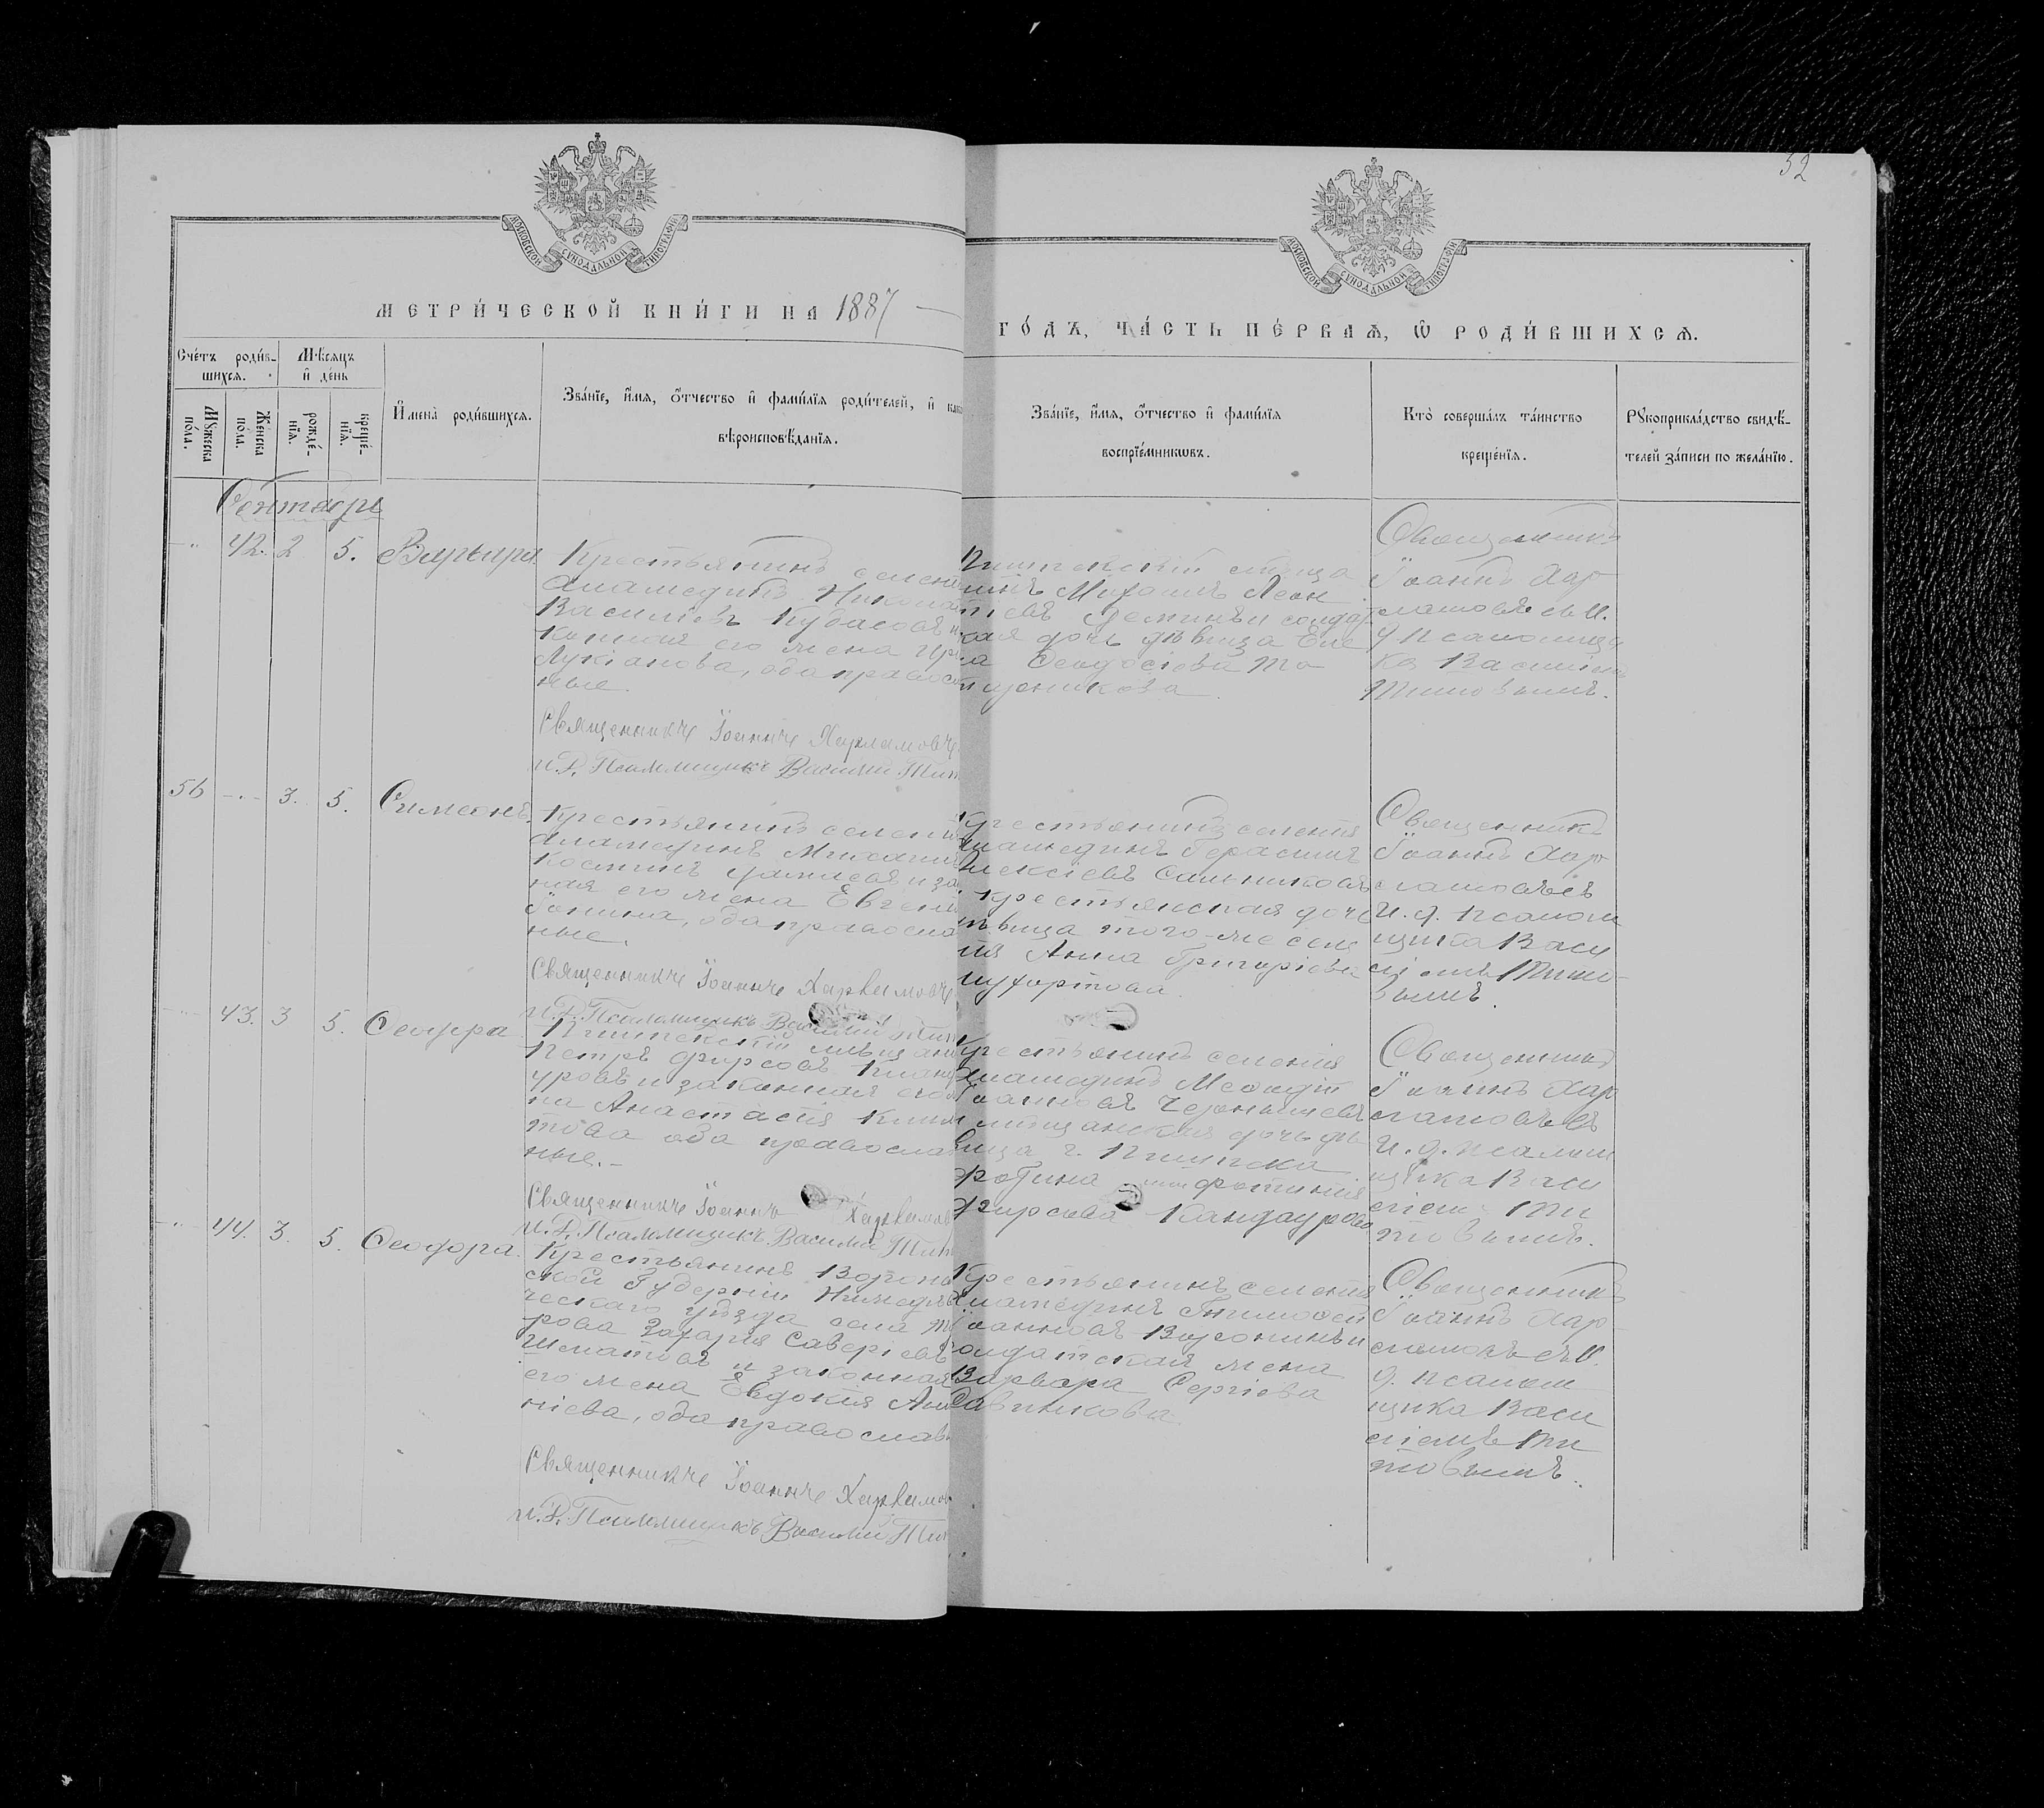 52
МОСКОВСКОЙ СѴНОДАЛЬНОЙ ТИПОГРАФІИ
МОСКОВСКОЙ СѴНОДАЛЬНОЙ ТИПОГРАФІИ
МЕТРИ́ЧЕСКОЙ КНИ́ГИ НА 1887
ГО́ДЪ, ЧА́СТЬ ПЕ́РВАѦ, Ѡ РОДИ́ВШИХСѦ.
Сче́тъ роди́в-
шихсѧ.
Мѣ́сѧцъ
и҆ де́нь
Мꙋжеска
по́ла.
Же́нска
по́ла.
рожде́-
нїѧ.
креще́-
нїѧ.
И҆мена̀ роди́вшихсѧ.
Зва́нїе, и҆́мѧ, ѻ҆́тчество и҆ фами́лїѧ роди́телей, и҆ како
вѣроисповѣ́данїѧ.
Зва́нїе, и҆́мѧ, ѻ҆́тчество и҆ фами́лїѧ
воспрїе́мникѡвъ.
Кто̀ соверша́лъ та́инство
креще́нїѧ.
Рꙋкоприкла́дство свидѣ́-
телей за́писи по жела́нїю.
Сентябрь
42. 2 5. Варвара
Крестьянинъ селені
Аламединъ Никола
Василіевъ Кубасовъ и
конная его жена Ири
Лукіанова, оба правосл
ные.
Священникъ Іоаннъ Харламовъ
И.Д. Псаломщикъ Василій Тит
Пишпекскій мѣща
нинъ Михаилъ Леон
тіевъ и солдат
ская дочь дѣвица Еле
на Ѳеодосіева
Священникъ
Іоаннъ Хар
ламовъ съ И.
д. псаломщи
ка Василіемъ
Титовымъ.
56 3. 5. Симеонъ
Крестьянинъ селені
Аламединъ Михаилъ
Косминъ и за
ная его жена Евгені
Іонина, оба правосла
ные.
Священникъ Іоаннъ Харламовъ
И.Д. Псаломщикъ Василій Тит
Крестьянинъ селенія
Аламединъ Герасимъ
Алексіевъ Сальниковъ
и крестьянская дочь
дѣвица того-же селе
нія Анна Григоріева
Священникъ
Іоаннъ Хар
ламовъ съ
И. д. псалом
щика Васи
ліемъ Тито-
вымъ.
43. 3 5. Ѳеодора
Пишпекскій мѣщани
Петръ Фирсовъ Канда
уровъ и законная его же
на Анастасія Клим
това оба православ
ные.-
Священникъ Іоаннъ Харламов
И.Д. Псаломщикъ Василій Тит
Крестьянинъ селенія
Аламединъ Меѳодій
Іоанновъ Чернышевъ
и мѣщанская дочь дѣ
вица г. Пишпека
Фотина или Фотинія
Фирсова Кандаурова
Священникъ
Іоаннъ Хар
ламовъ съ
И. д. псалом
щика Васи
ліемъ Ти
товымъ.
44. 3. 5. Ѳеодора.
Крестьянинъ Вороне
ской Губерніи Нижнедѣви
ческаго уѣзда села Ту
рова Захарія Саверіевъ
и законная
его жена Евдокія Ана
ніева, оба православ
Священникъ Іоаннъ Харламов
И.Д. Псаломщикъ Василій Тит
Крестьянинъ селенія
Аламединъ Тимоѳей
Іоанновъ Воронинъ и
солдатская жена
Варвара Сергіева
Савинкова
Священникъ
Іоаннъ Хар
ламовъ съ И.
д. псалом
щика Васи
ліемъ Ти
товымъ.